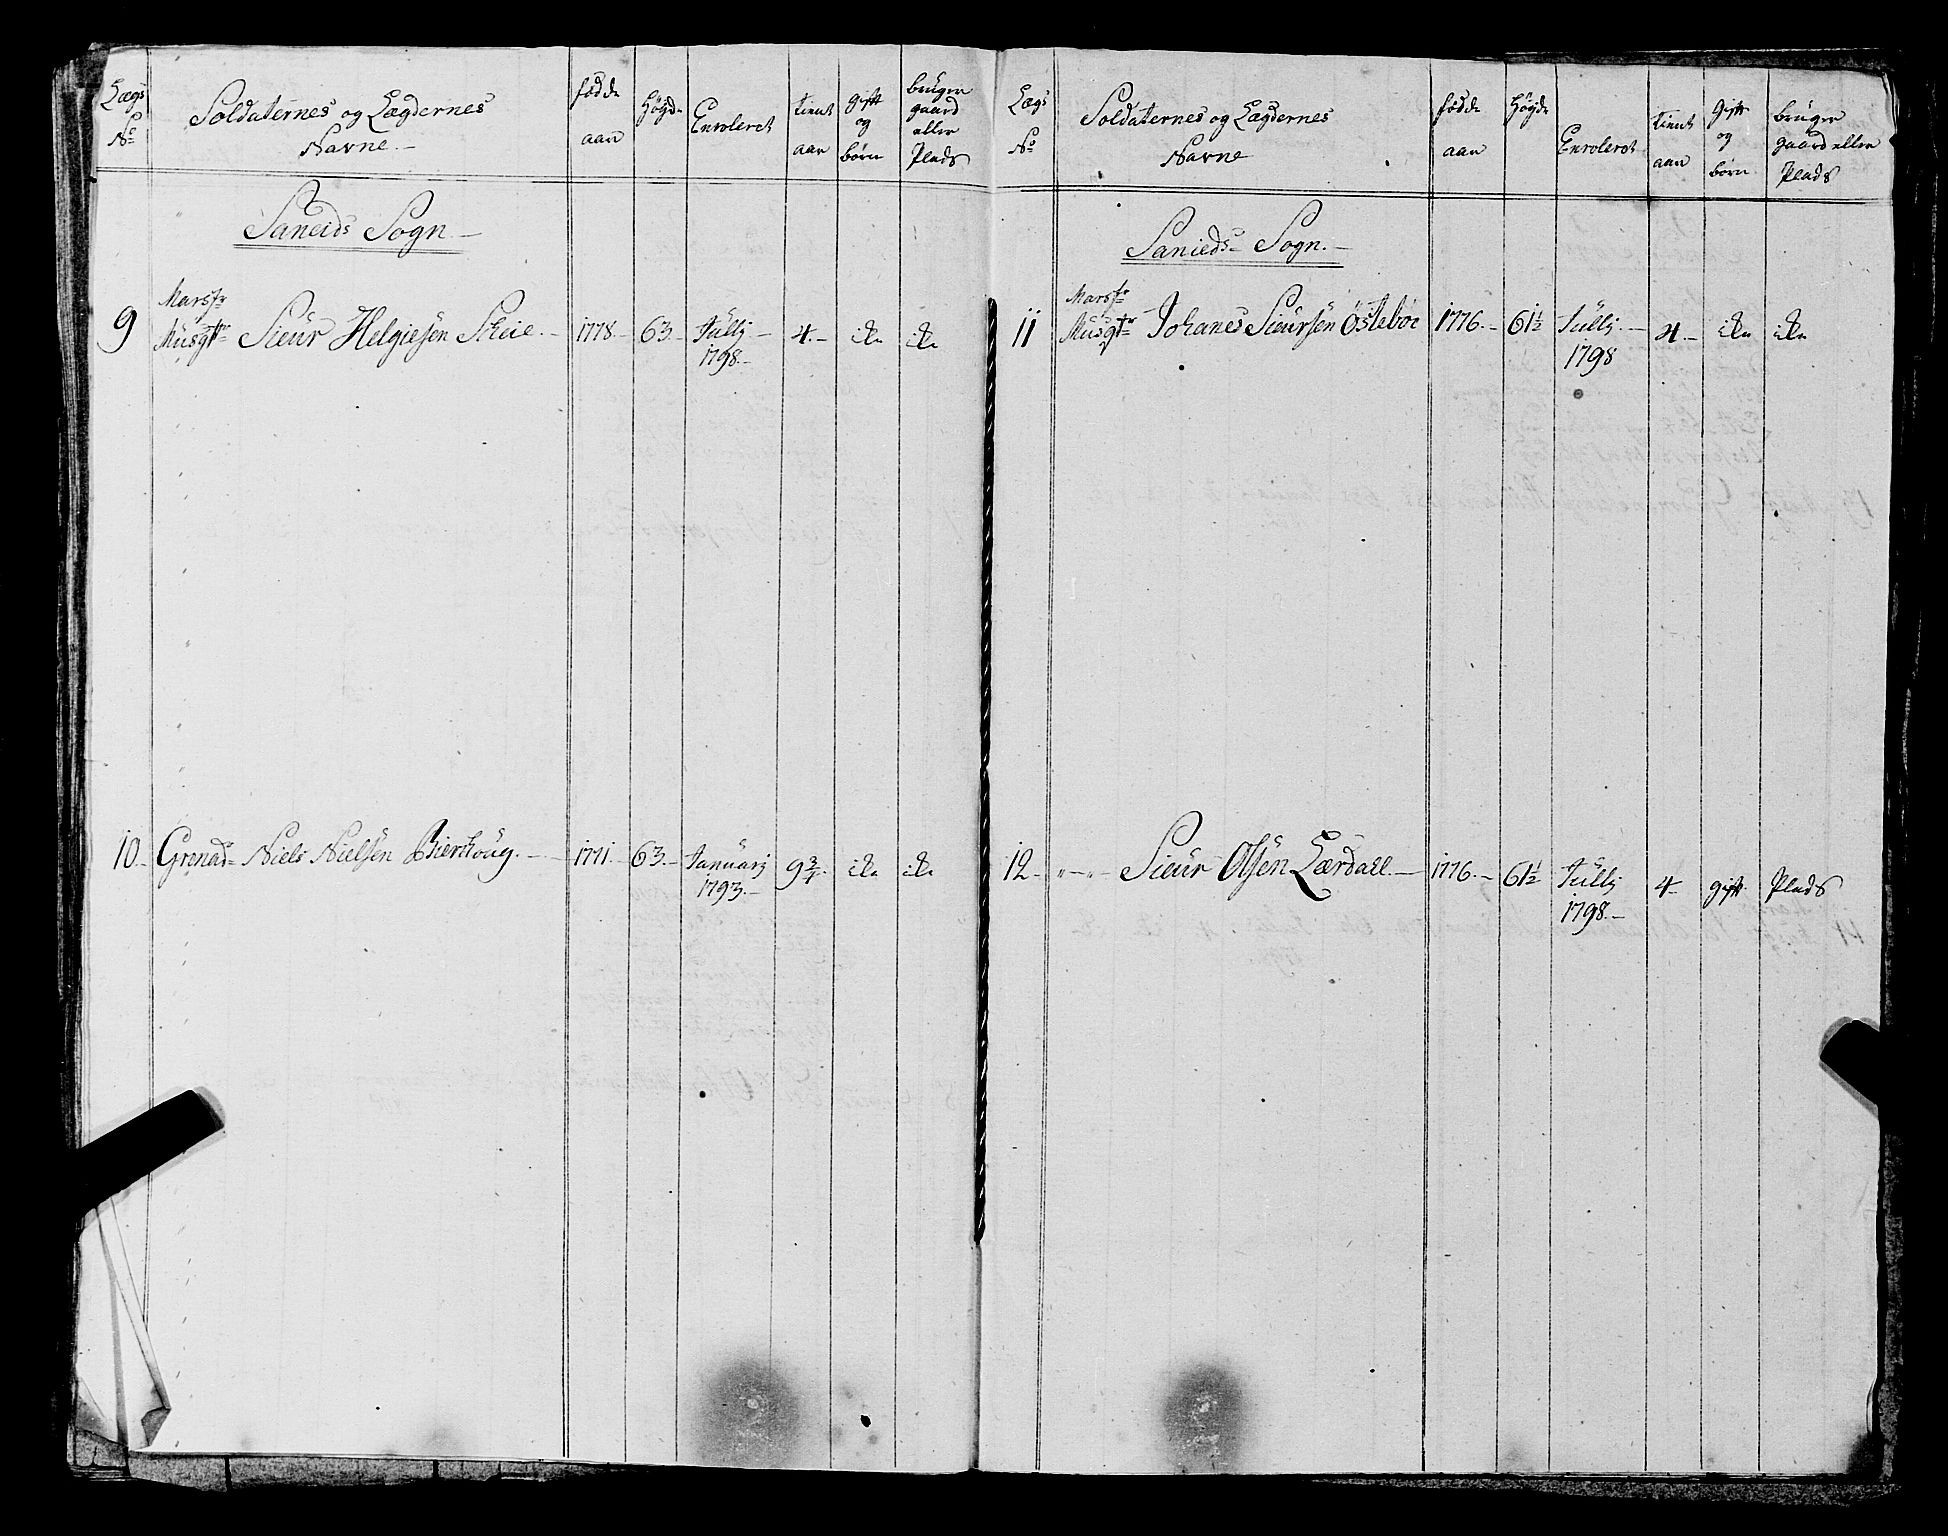 Lægs No
Soldaternes og Lægdernes Navne.
fødde aar
Høyde
Enroleret
tient aar
gift og børn
bruger gaard eller Plads
Saneids Sogn
9 Marsfr Musqtr Sieur Helgiesen Skeie. 1778. 63. Jullj 1798. 4. icke icke
10. Grenadr Niels Nielsen Bierkoug. 1771. 63. Januarj 1793. 9 3/4. icke icke
Lægs No
Soldaternes og Lægdernes Navne
fødde aar
Høyde
Enroleret
tient aar
gift og børn
bruger gaard eller Plads
Sanieds Sogn.
11 Marsfr Musqtr Johanes Sieursen Östeböe 1776. 61 1/2 Jullj 1798 4. icke icke
12. " " Sieur Olsen Lærdall. 1776. 61 1/2 Jullj 1798. 4 gift Plads